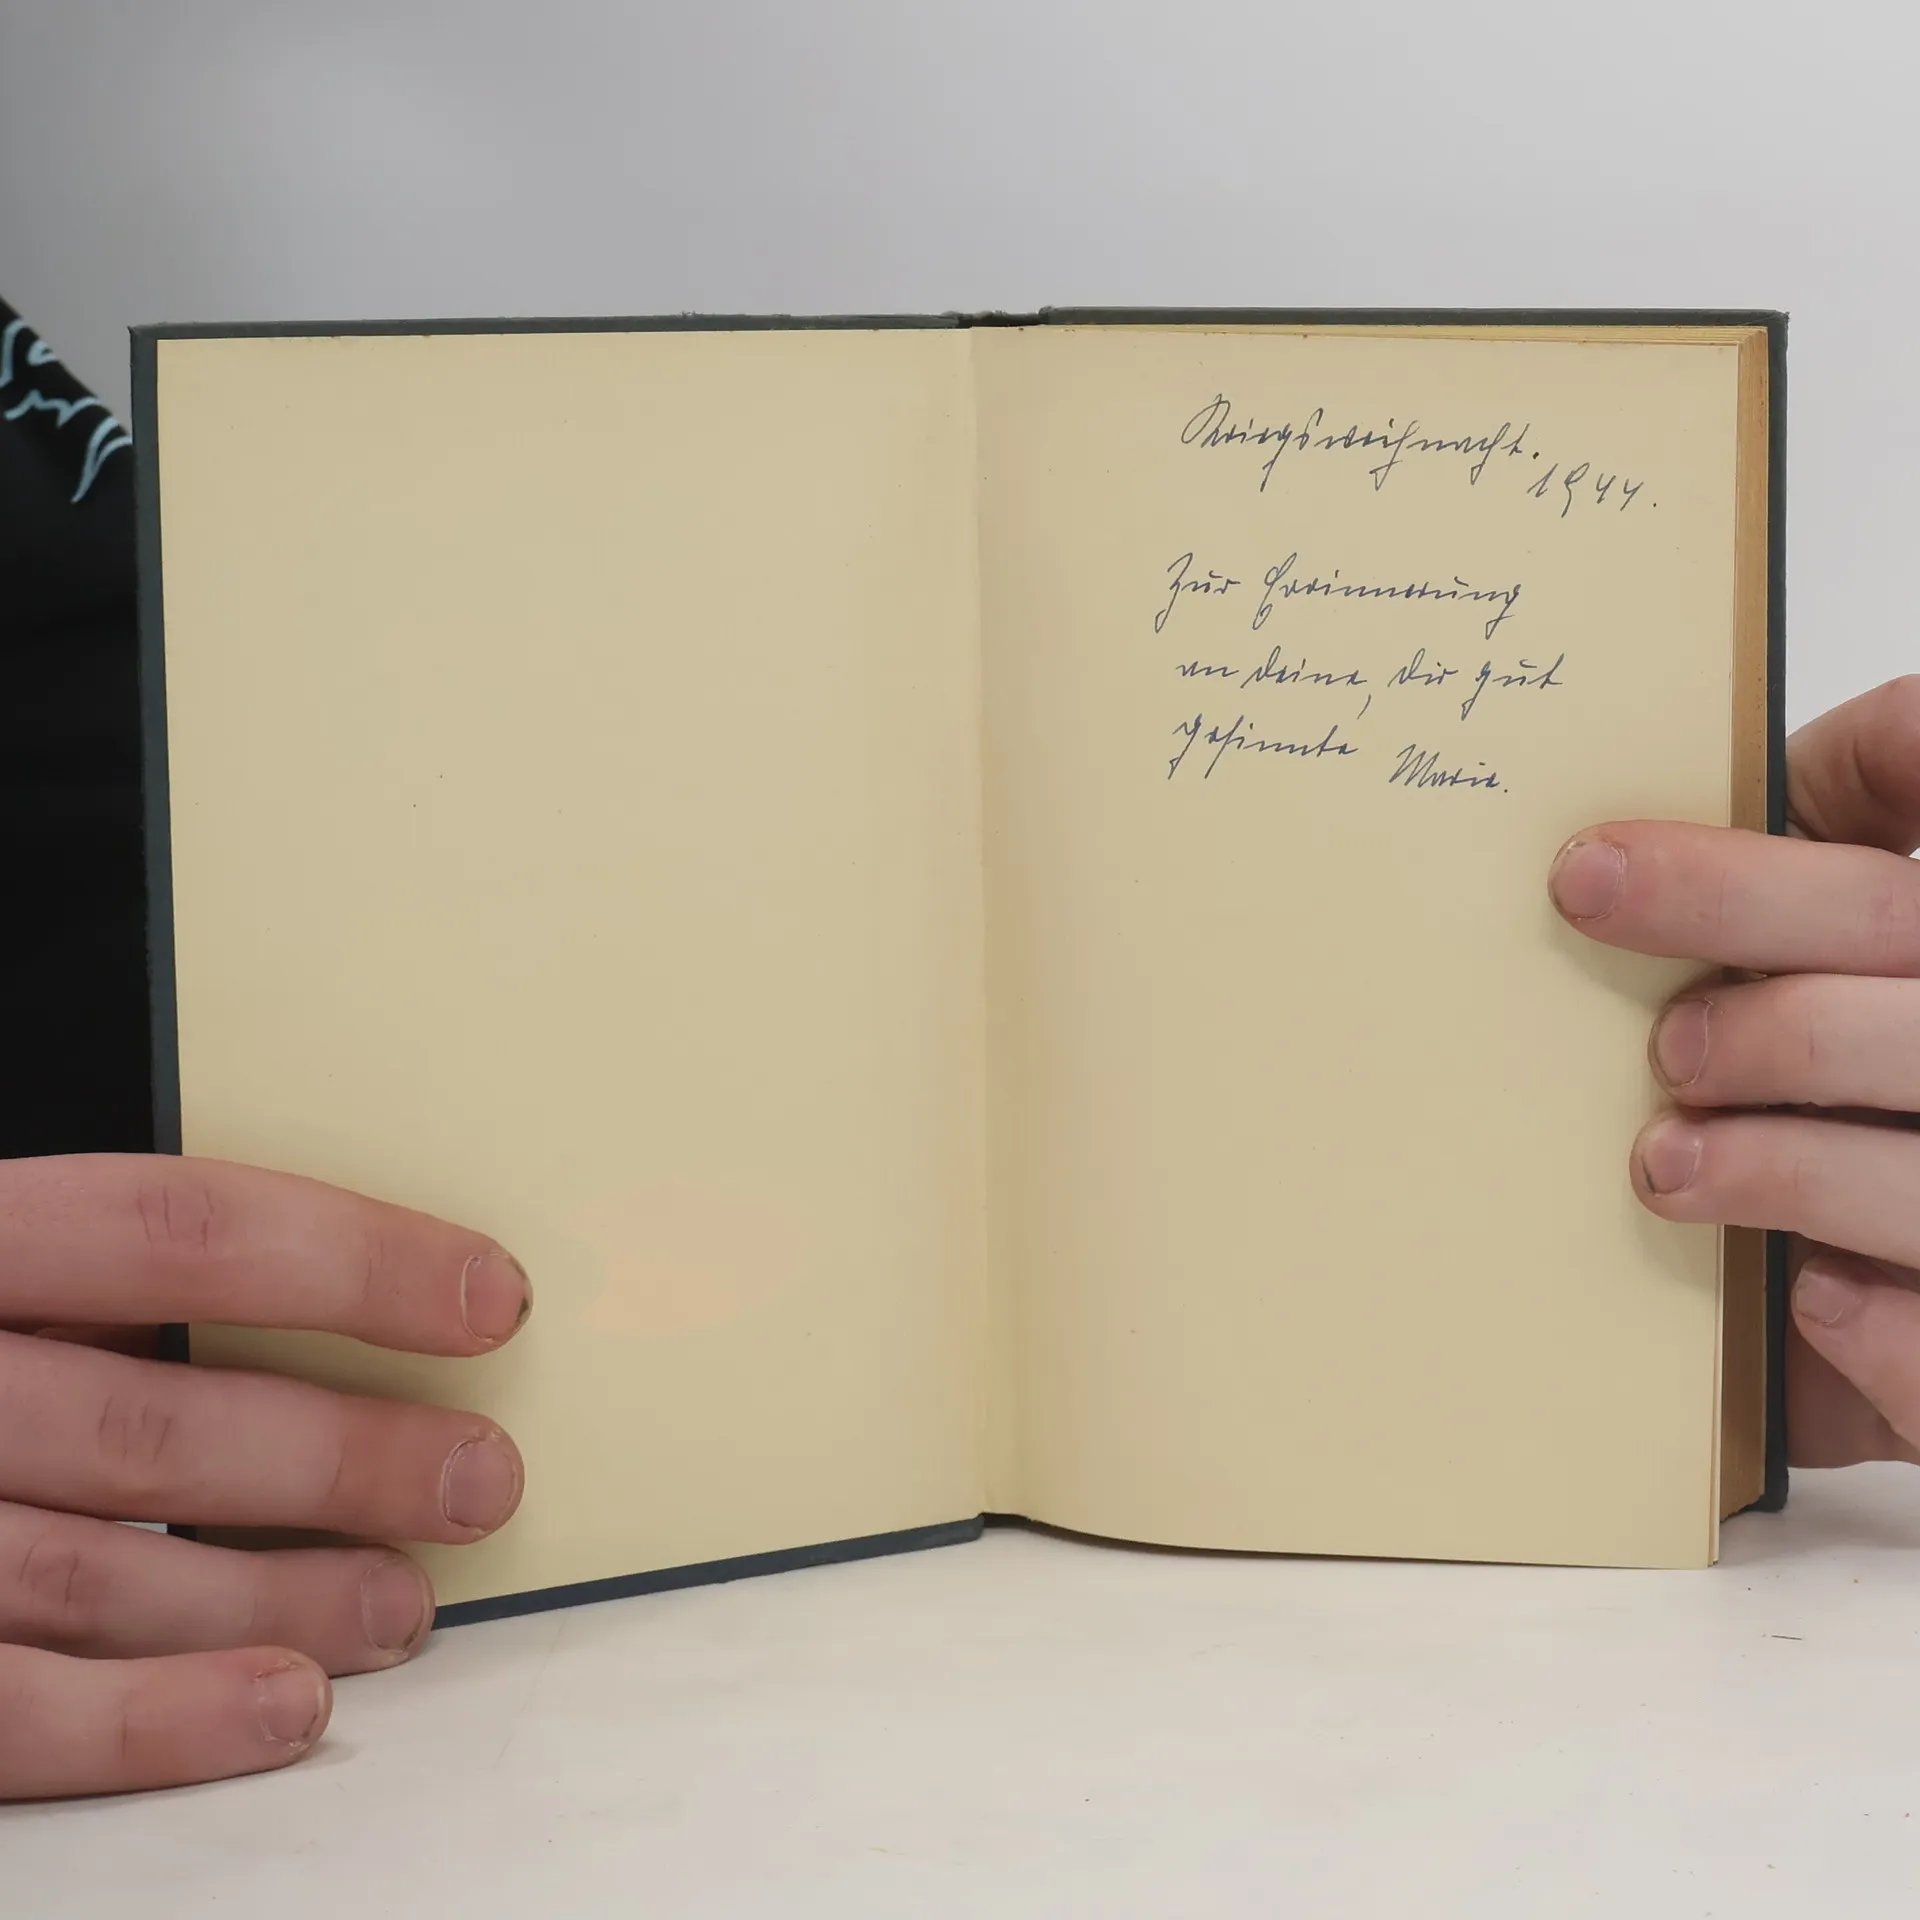 Kriegsweihnacht.
1944.
Zur Erinnerung
an deine, dir gut
gesinnte Marie.